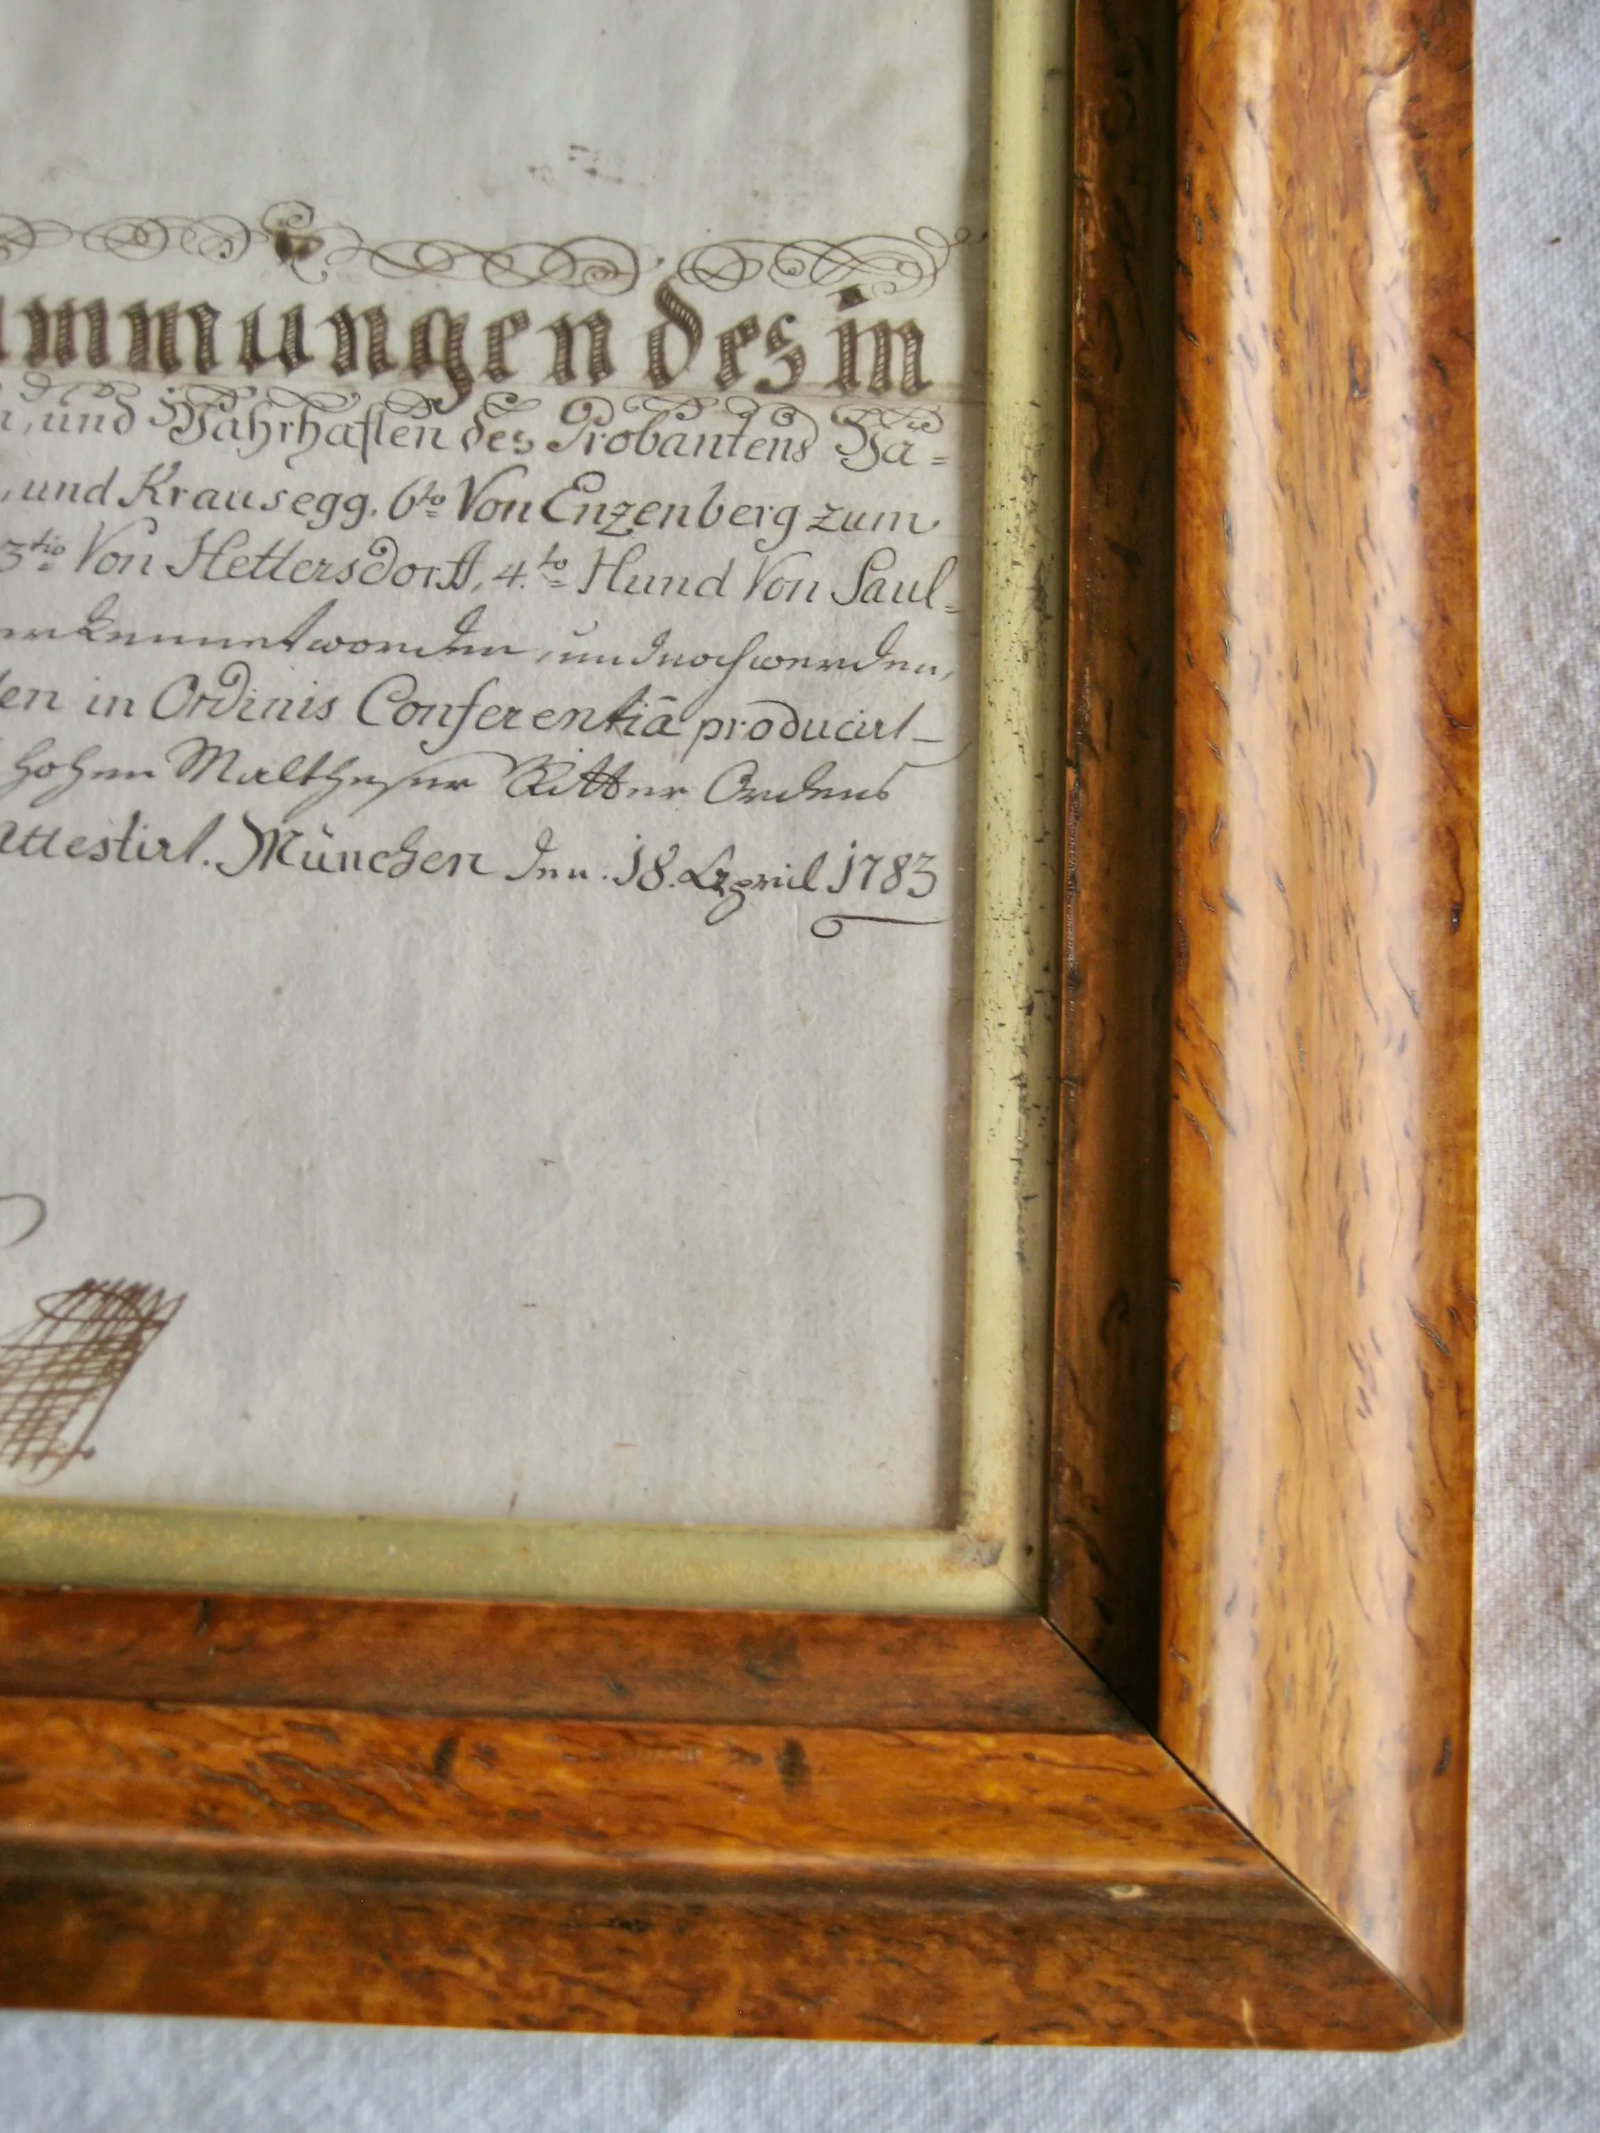 ammungen des im
n, und Wahrhaften des Probantens Va=
, und Krausegg. 6to Von Enzenberg zum
3tio Von Hettersdorff, 4.to Hund Von Saul=
erkennet worden, und noch werden,
ten in Ordinis Conferentiâ producirt
hohen Maltheser Ritter Ordens
Attestirt. München den. 18. April 1783